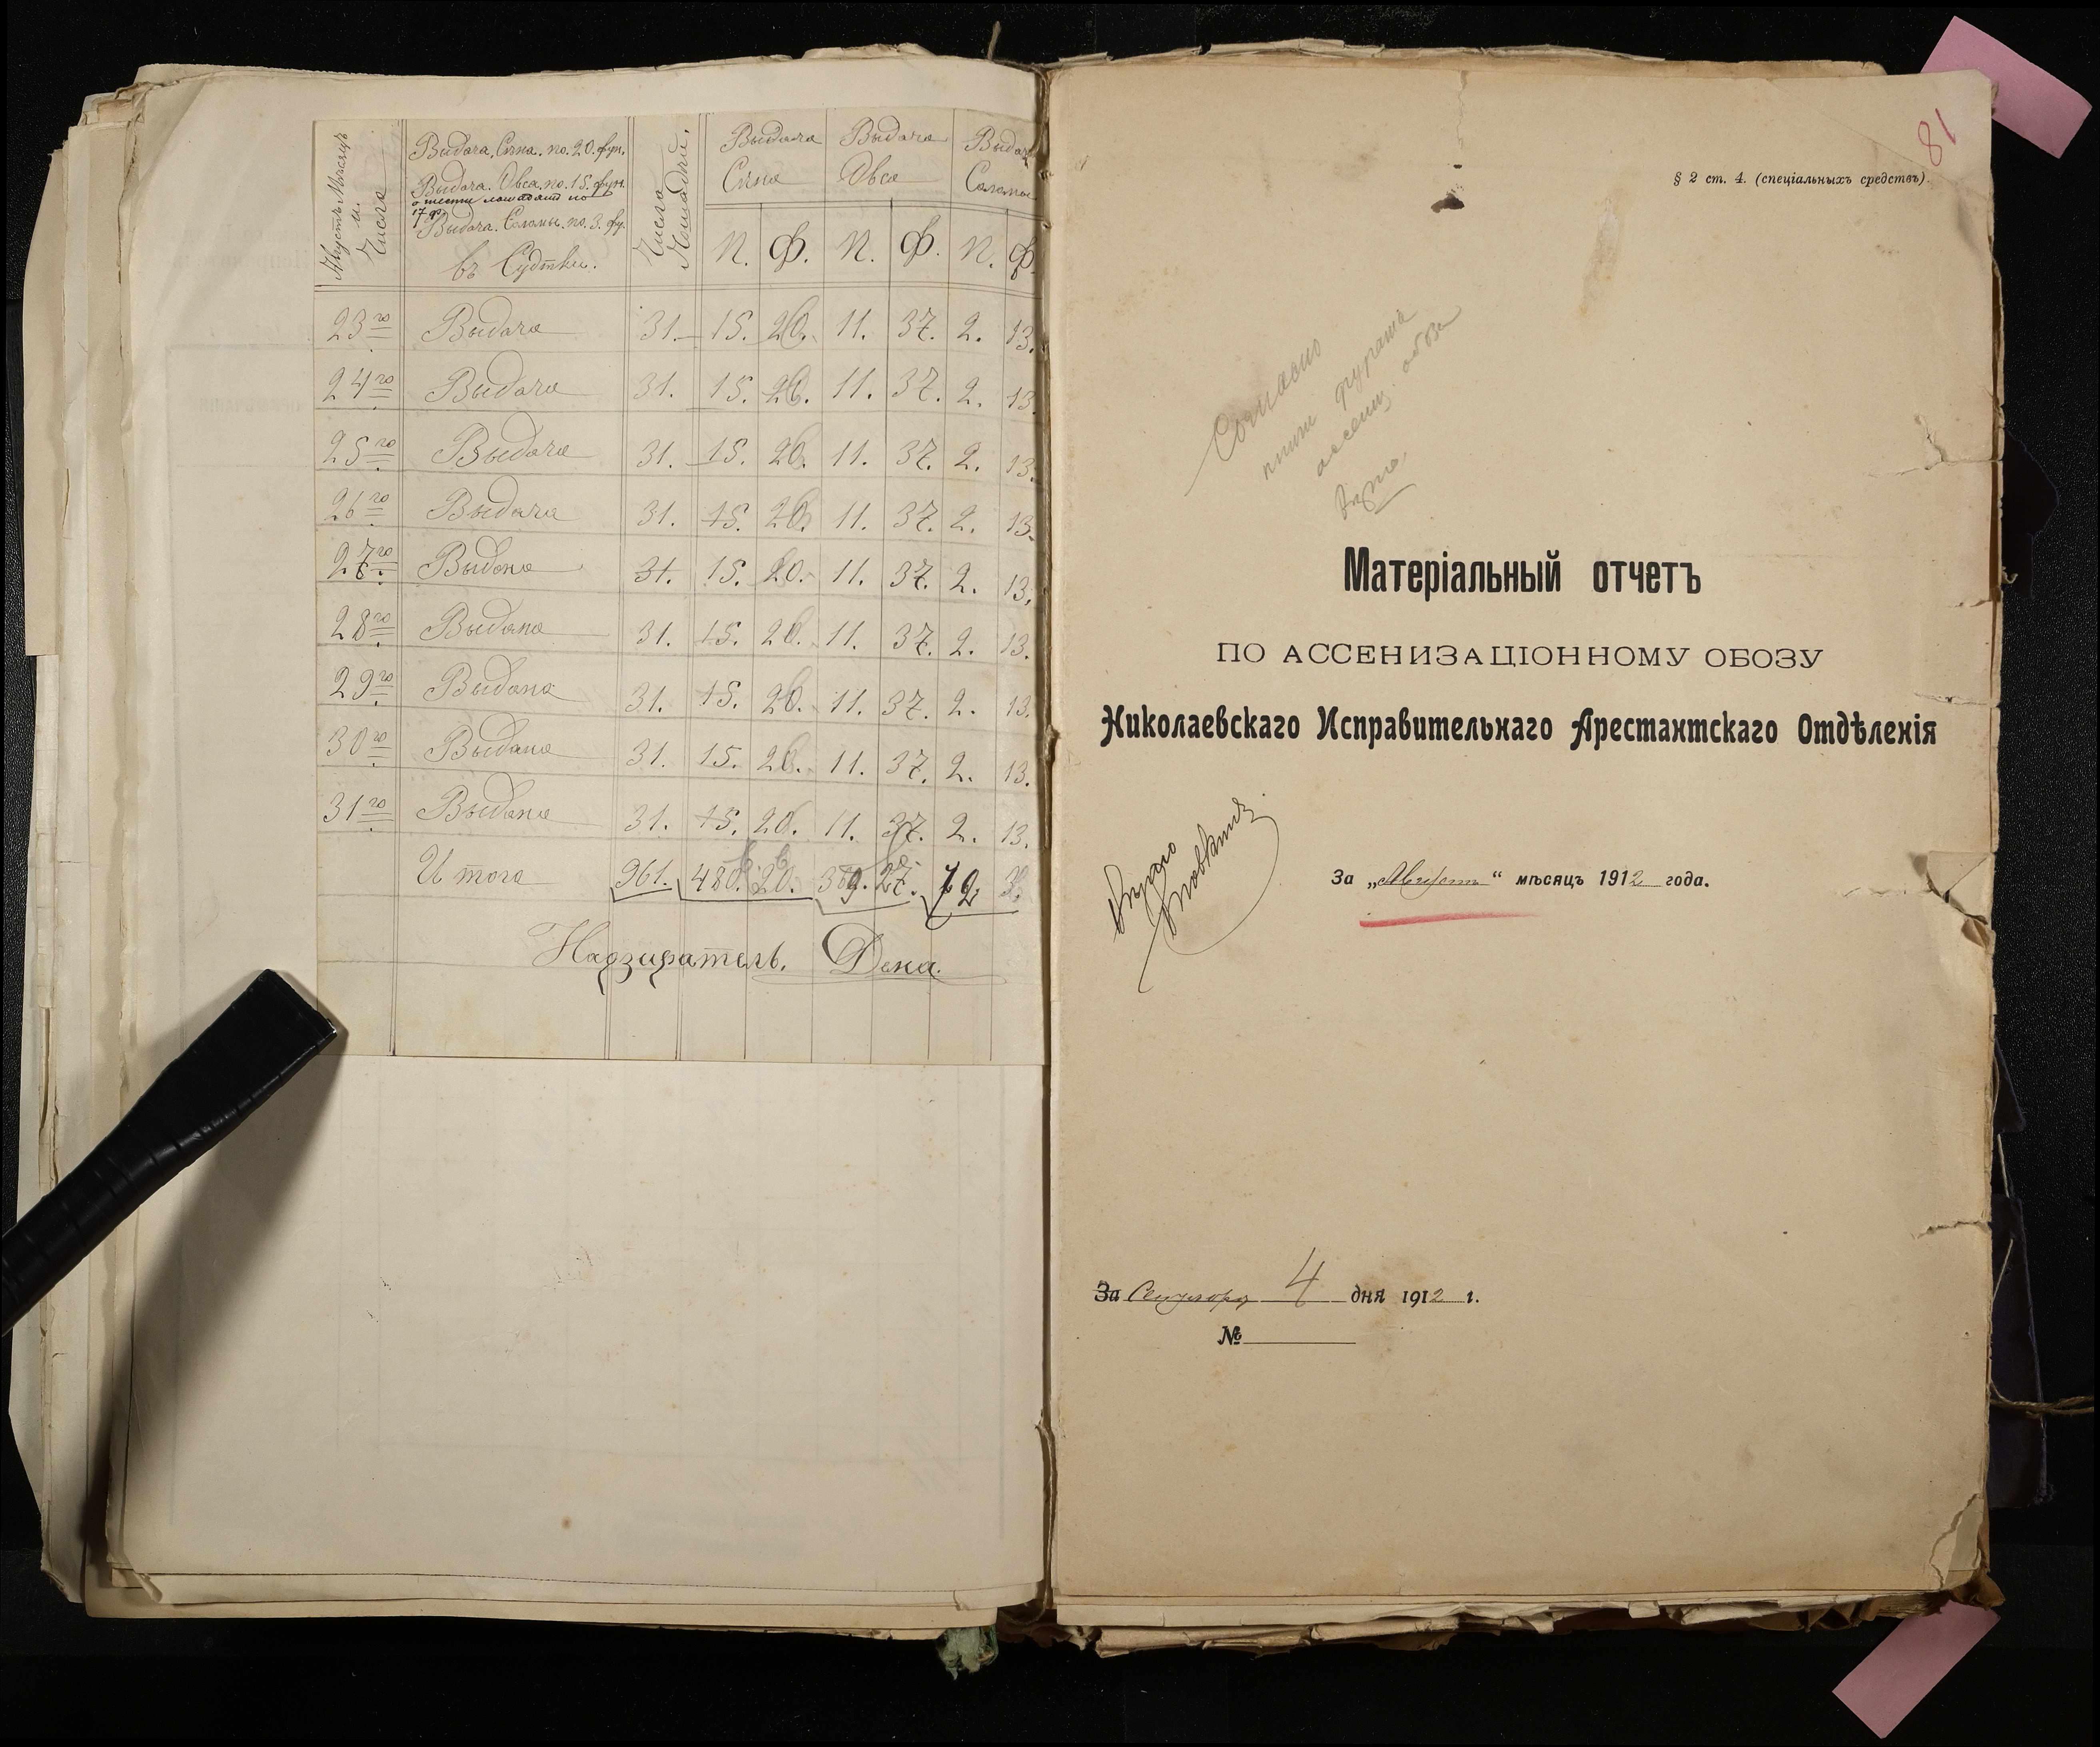 Августъ Мѣсяцъ и Числа
Выдача. Сѣна. по. 20. фун.
Выдача. Овса. по. 15. фун.
о шести лошадей по 17 ф.
Выдача. Соломы. по. 3. фу.
въ Судтки.
Число Лошадей.
Выдача Сѣна
Выдача Овса
Выдач Соломы
П. Ф. П. Ф. П. Ф.
23го Выдача 31. 15. 20. 11. 37. 2. 13.
24го Выдача 31. 15. 20. 11. 37. 2. 13.
25го Выдача 31. 15. 20. 11. 37. 2. 13.
26го Выдача 31. 15. 20. 11. 37. 2. 13.
27го Выдоно 31. 15. 20. 11. 37. 2. 13.
28го Выдана 31. 15. 20. 11. 37. 2. 13.
29го Выдана 31. 15. 20. 11. 37. 2. 13.
30го Выдана 31. 15. 20. 11. 37. 2. 13.
31го Выдана 31. 15. 20. 11. 37. 2. 13.
Итого 961. 480. 20. 369. 27. 72
Надзиратель. Дека.
81
§ 2 ст. 4. (спеціальныхъ средствъ).
Согласно
книги фуража
ассениз. обоза
Матеріальный отчетъ
ПО АССЕНИЗАЦІОННОМУ ОБОЗУ
Николаевскаго Исправительнаго Арестантскаго Отдѣленія
За „Августъ“ мѣсяцъ 1912 года.
За Сентября 4 дня 1912 г.
№